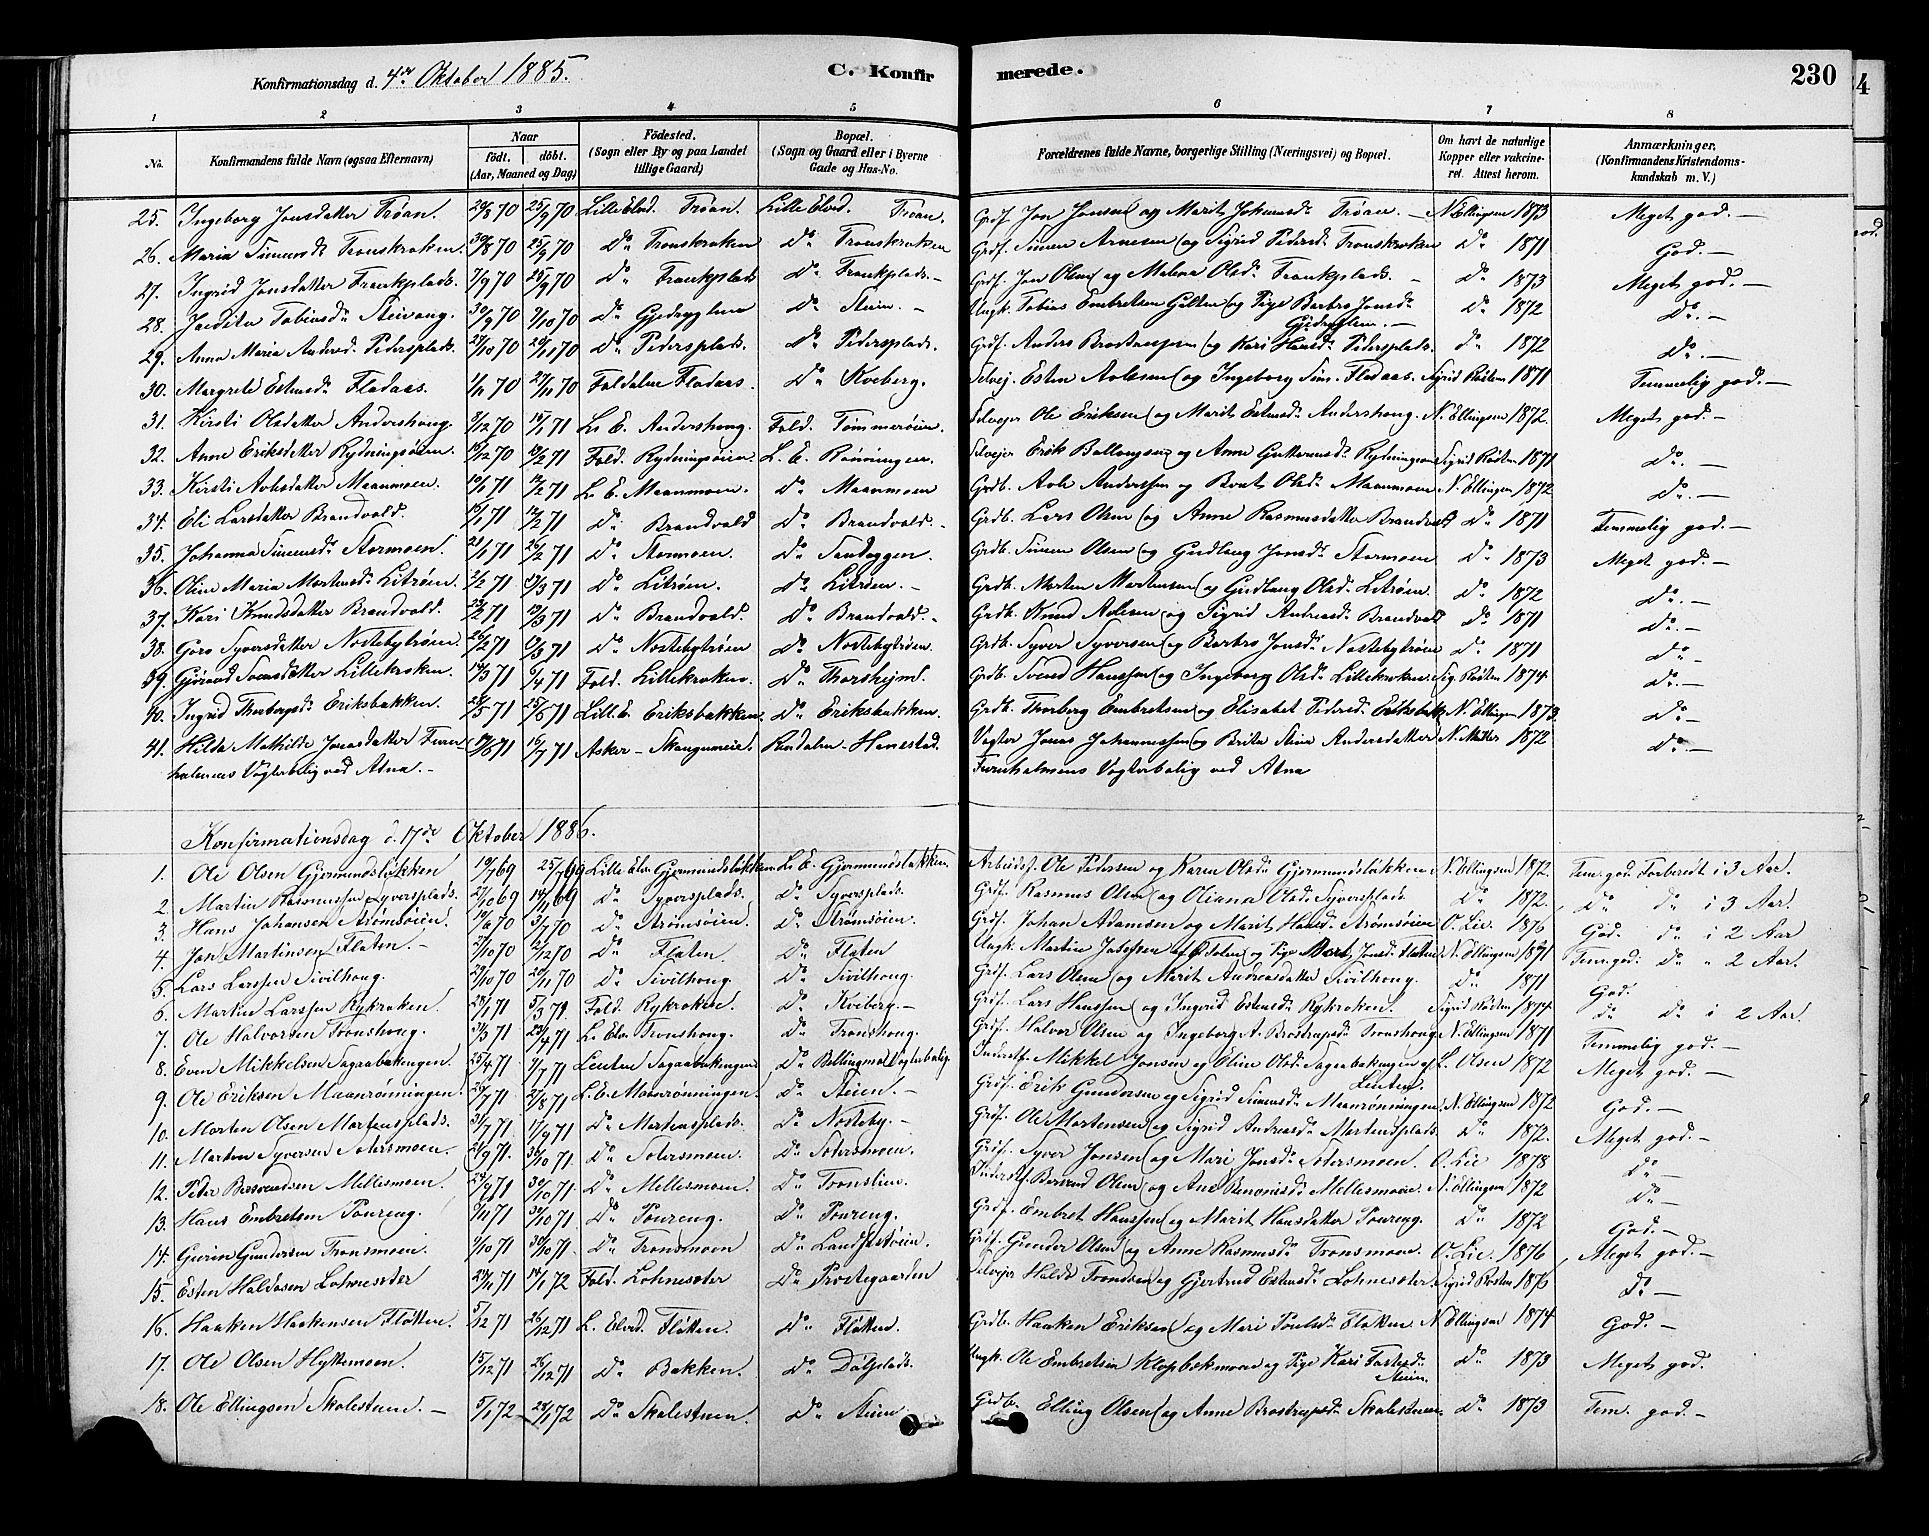 Konfirmationsdag d. 4de Oktober 1885. C. Konfirmerede. 230
1 2 3 4 5 6 7 8
No. Konfirmandens fulde Navn (ogsaa Efternavn) Naar født. døbt. (Aar, Maaned og Dag) Födested. (Sogn eller By og paa Landet tillige Gaard) Bopæl. (Sogn og Gaard eller i Byerne Gade og Hus-No. Forældrenes fulde Navne, borgerlige Stilling (Næringsvei) og Bopæl. Om havt de naturlige Kopper eller vakcineret. Attest herom. Anmærkninger. (Konfirmandens Kristendomskundskab m. V.)
25. Ingeborg Jonsdatter Trøan. 20/8 70 25/9 70 Lille Elvd. Trøan. Lille Elvd. Trøan. Grdf. Jon Jonsen og Marit Johansd. Trøan. - N. Ellingsen 1873 Meget god. -
26. Maria Simensd. Tronskroken. 30/8 70 25/9 70 Do Tronskroken Do Tronskroken Grdf. Simen Arnesen og Sigrid Pedersd. Tronskroken Do 1871 God. -
27. Ingrid Jonsdatter Frankplads. 7/9 70 25/9 70 Do Frankplads Do Frankplads. - Grdf. Jon Olsen og Malena Olsd. Frankplads. - Do 1873 Meget god. -
28. Jaedita Tobiasd. Steivang. 30/9 70 9/10 70 Do Gjedryglien Do Steien. - Ungk. Tobias Embretsen Galten og Pige Barbro Jonsd. Gjedryglien. - Do 1872 Do. -
29. Anna Maria Andersd. Pedersplads. 27/10 70 20/11 70 Do Pedersplads. Do Pedersplads. Grdf. Anders Brostrupsen og Kari Hansd. Pedersplads. Do 1872 Do. -
30. Margrete Estensd. Fladaas. 1/11 70 27/11 70 Foldalen Fladaas. Do Kveberg. Selvej. Esten Avlesen og Ingeborg Sim. Fladaas. Sigrid Røsten 1871 Temmelig god. -
31. Kirsti Olsdatter Andershoug. 9/12 70 15/1 71 L. E. Andershoug. Fold. Tommerøien. Selvejer Ole Eriksen og Marit Estensd. Andershoug. N. Ellingsen 1872. Meget god. -
32. Anne Eriksdatter Rydningsøien. 10/12 70 12/2 71 Fold. Rydningsøien. L. E. Rønningen. Selvejer Erik Ballongsen og Anne Guttormsd. Rydningsøien Sigrid Røsten 1871 Do. -
33. Kirsti Avlesdatter Maanmoen. 10/1 71 12/2 71 L. E. Maanmoen. Do Maanmoen Grdb. Avle Anderssen og Beret Olsd. Maanmoen N. Ellingsen 1872 Do. -
34. Eli Larsdatter Brandvold. 19/1 71 12/2 71 Do. Brandvold Do Brandvold. - Grdb. Lars Olsen og Anne Rasmusdatter Brandvold Do 1871 Temmelig god. -
35. Johanna Simensd. Stormoen. 21/1 71 26/2 71 Do Stormoen. Do Sandeggen. Grdb. Simen Olsen og Gudlaug Jonsd. Stormoen Do 1873 Meget god. -
36. Oline Maria Mortensd. Litrøen. 2/2 71 19/3 71 Do Litrøen. Do Litrøen. - Grdb. Morten Mortensen og Gudlaug Olsd. Litrøen. Do 1872 Do. -
37. Kari Knudsdatter Brandvold. 22/2 71 19/3 71 Do Brandvold. Do Brandvold. - Grdb. Knud Avlesen og Sigrid Andreasd. Brandvold Do 1871 Do. -
38. Goro Syversdatter Nostebytrøen. 26/2 71 19/3 71 Do Nostebytrøen Do Nostebytrøen. Grdb. Syver Syversen og Barbro Jonsd. Nostebytrøen Do 1871 Do. -
39. Gjørand Svensdatter Lillekroken. 14/3 71 6/4 71 Fold. Lillekroken. Do Thorshejmd. Grdb. Svend Hanssen og Ingeborg Olsd. Lillekroken Sig. Røsten 1874. Do. -
40. Ingrid Thorbergsd. Eriksbakken. 23/5 71 25/6 71 Lill. E. Eriksbakken. Do Eriksbakken. Grdb. Thorberg Embretsen og Elisabet Pedersd. Eriksbakk. N. Ellingsen 1873. Do. -
41. Hilda Mathilde Jonasdatter Furuholmens Vogterbolig ved Atna. - 19/5 71 16/7 71 Asker - Skaugumeie. Rendalen - Hanestad. Vogter Jonas Johannessen og Brita Stine Andersdatter Furuholmens Vogterbolig ved Atna N. Møller 1872 Do. -
Konfirmationsdag d. 17de Oktober 1886.
1. Ole Olsen Gjermundsløkken 19/7 69 25/7 69 Lille Elvd. Gjermundsløkken L. E. Gjermundsløkken. Arbeidsf. Ole Pedersen og Karen Olsd. Gjermundsløkken. N. Ellingsen 1872. Tem. god. Forberedt i 3 Aar.
2. Martin Rasmussen Syversplads. 27/10 69 14/11 69 Do Syversplads. Do Syversplads. Grdf. Rasmus Olsen og Oliana Olsd. Syversplads Do 1872. Do Do i 3 Aar.
3. Hans Johansen Strømsøien. 3/7 70 Do Strømsøien. Do Strømsøien. Grdf. Johan Adamsen og Marit Hansd. Strømsøien O. Lie. 1876 God. Do i 2 Aar
4. Jon Martinsen Flaten. - 27/10 70 2/12 70 Do Flaten. Do Flaten Ungk. Martin Josefsen og Pige Beret Jonsd. Flaten N. Ellingsen 1871 Tem. god. Do " 2 Aar.
5. Lars Larssen Sivilhoug. 29/10 70 20/11 70 Do Sivilhoug. Do Sivilhoug. Grdf. Lars Olsen og Marit Andreasdatter Sivilhoug. Do 1871 God.
6. Martin Larssen Rykroken. 24/1 71 5/3 71 Fold. Rykroken. Do Kveberg. - Grdf. Lars Hanssen og Ingrid Estensd. Rykroken. Sigrid Røsten 1874. Do Do i 2 Aar.
7. Ole Halvorsen Tronshoug. 31/3 71 23/4 71 L. Elvd. Tronshoug. Do Tronshoug. Grdf. Halvor Olsen og Ingeborg A. Brostrupsd. Tronshoug N. Ellingsen 1871 Temmelig god. -
8. Even Mikkelsen Sagaabakengen. 25/4 71 9/7 71 Leuten Sagaabakengen Do Bellingmo Vogterbolig. Inderstf. Mikkel Jonsen og Oline Olsd. Sagaabakengen af Leuten. L. Olsen 1872 Meget god. -
9. Ole Eriksen Maanrønningen. 26/7 71 27/8 71 L. E. Maanrønningen. Do Steien. - Grdf. Erik Gundersen og Sigrid Simensd. Maanrønningen. N. Ellingsen 1872 God. -
10. Morten Olsen Mortensplads. 31/7 71 17/9 71 Do Mortensplads. Do Nosteby. - Grdf. Ole Mortensen og Sigrid Andreasd. Mortensplads. Do 1872. Meget god. -
11. Morten Syversen Sotersmoen. 21/9 71 30/10 71 Do Sotersmoen. Do Sotersmoen. Grdf. Syver Jonsen og Mari Jonsd. Sotersmoen. O. Lie 1878 Do -
12. Peder Bersvendsen Mellesmoen. 24/9 71 30/10 71. Do Mellesmoen. Do Tronslien. Inderstf. Bersvend Olsen og Ane Benonisd. Mellesmoen. N. Ellingsen 1872 Do -
13. Hans Embretsen Poureng. 30/10 71 Do Poureng. Do Poureng. Grdf. Embret Hanssen og Marit Hansdatter Poureng. Do 1872 God. -
14. Gurin Gundersen Tronsmoen. 9/10 71 30/10 71. Do Tronsmoen Do Landsestøien. Grdf. Gunder Olsen og Anne Rasmusd. Tronsmoen. O. Lie. 1876 Meget god. -
15. Esten Haldosen Lohnesæter 24/11 71 14/1 72 Fold. Lohnesæter Do Prestegaarden Selvejer Haldo Trondsen og Gjertrud Estensd. Lohnesæter. Sigrid Røsten 1876 Do -
16. Haaken Haakensen Fløtten. 5/12 71 26/12 71 L. Elvd. Fløtten. Do Fløtten. Grdb. Haaken Eriksen og Mari Poulsd. Fløtten. N. Ellingsen 1874 God. -
17. Ole Olsen Hyttemoen. 15/12 71 26/12 71 Do Bakken. Do Dølplads. Ungk. Ole Embretsen Klopbekmoen og Pige Kari Tostensd. Steien. Do 1873 Meget god.
18. Ole Ellingsen Skolestuen. - 5/1 72 28/1 72 Do Skolestuen. Do Steien Grdb. Elling Olsen og Anne Brostrupsd. Skolestuen Do 1873 Tem. god. -